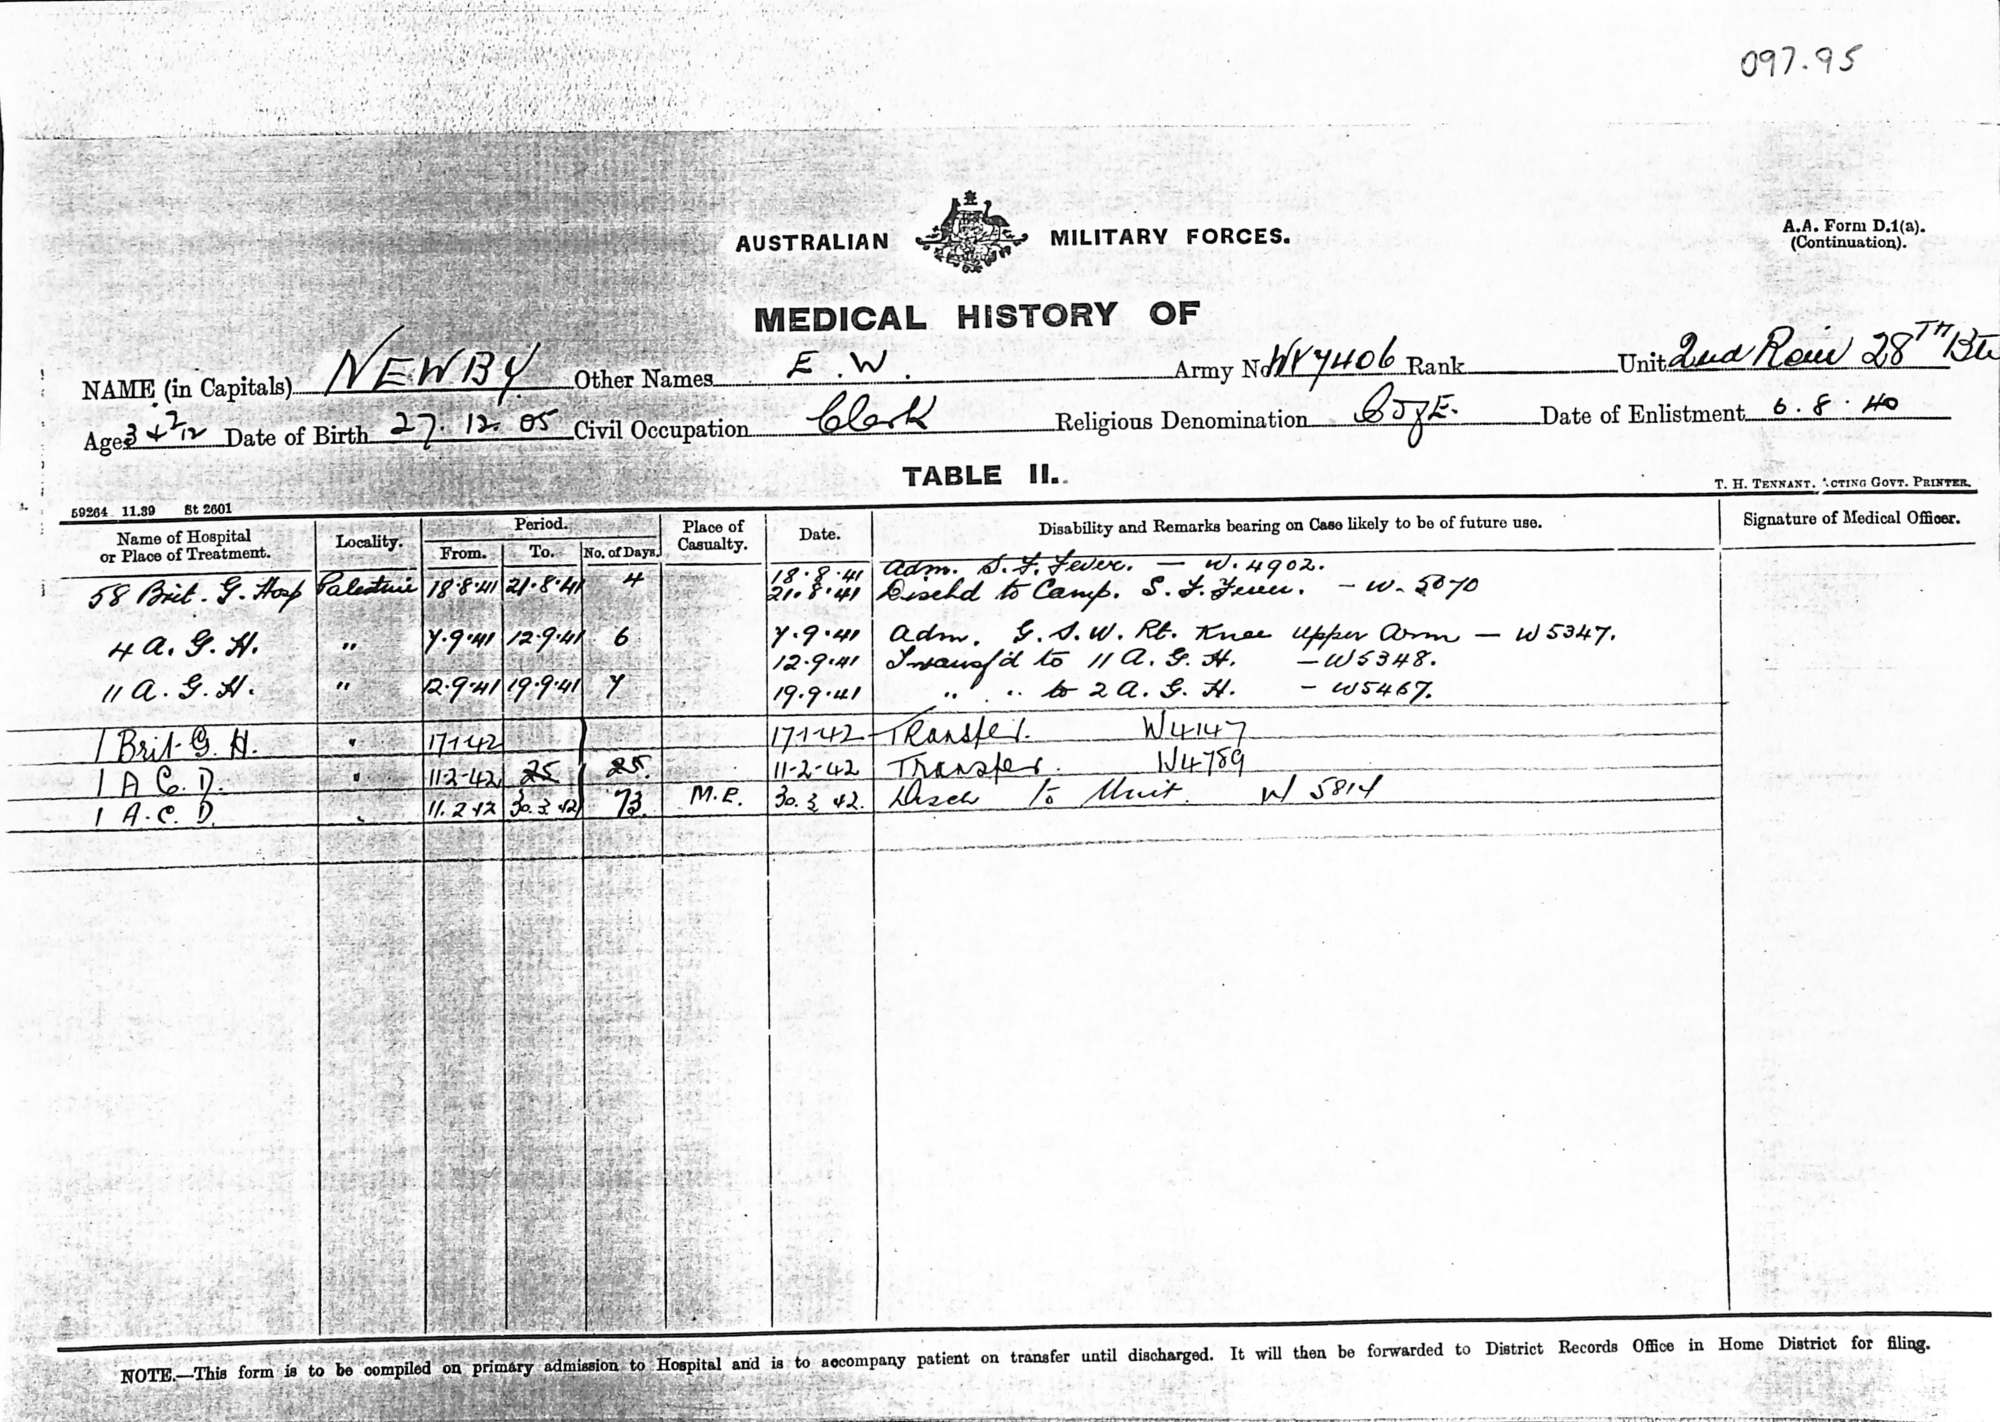 097.95
AUSTRALIAN MILITARY FORCES.
A.A. Form D.1(a).
(Continuation).
MEDICAL HISTORY OF
NAME (in Capitals) NEWBY Other Names E.W. Army No WX7406 Rank Unit 2nd Rein 28TH Btn
Age 34 2/12 Date of Birth 27.12.05 Civil Occupation Clerk Religious Denomination C of E. Date of Enlistment 6.8.40
TABLE II.
59264 11.39 St 2601 T. H. TENNANT, ACTING GOVT. PRINTER.
Name of Hospital or Place of Treatment. Locality. Period. From. To. No. of Days. Place of Casualty. Date. Disability and Remarks bearing on Case likely to be of future use. Signature of Medical Officer.
58 Brit. G. Hosp Palestine 18.8.41 21.8.41 4 18.8.41 Adm. S.F. Fever. — W.4902.
21.8.41 Dischd to Camp. S.F. Fever. — W. 5070
4 A.G.H. " 7.9.41 12.9.41 6 7.9.41 Adm. G.S.W. Rt. Knee Upper Arm — W5347.
12.9.41 Transf'd to 11 A.G.H. — W5348.
11 A.G.H. " 12.9.41 19.9.41 7 19.9.41 " " to 2 A.G.H. — W5467.
1 Brit. G. H. " 17-1-42 17-1-42 Transfer. W4147
1 A C. D. " 11-2-42 25 25. 11-2-42 Transfer. W4789
1 A.C.D. " 11.2.42 30.3.42 73. M.E. 30.3.42. Disch to Unit. W 5814
NOTE.—This form is to be compiled on primary admission to Hospital and is to accompany patient on transfer until discharged. It will then be forwarded to District Records Office in Home District for filing.